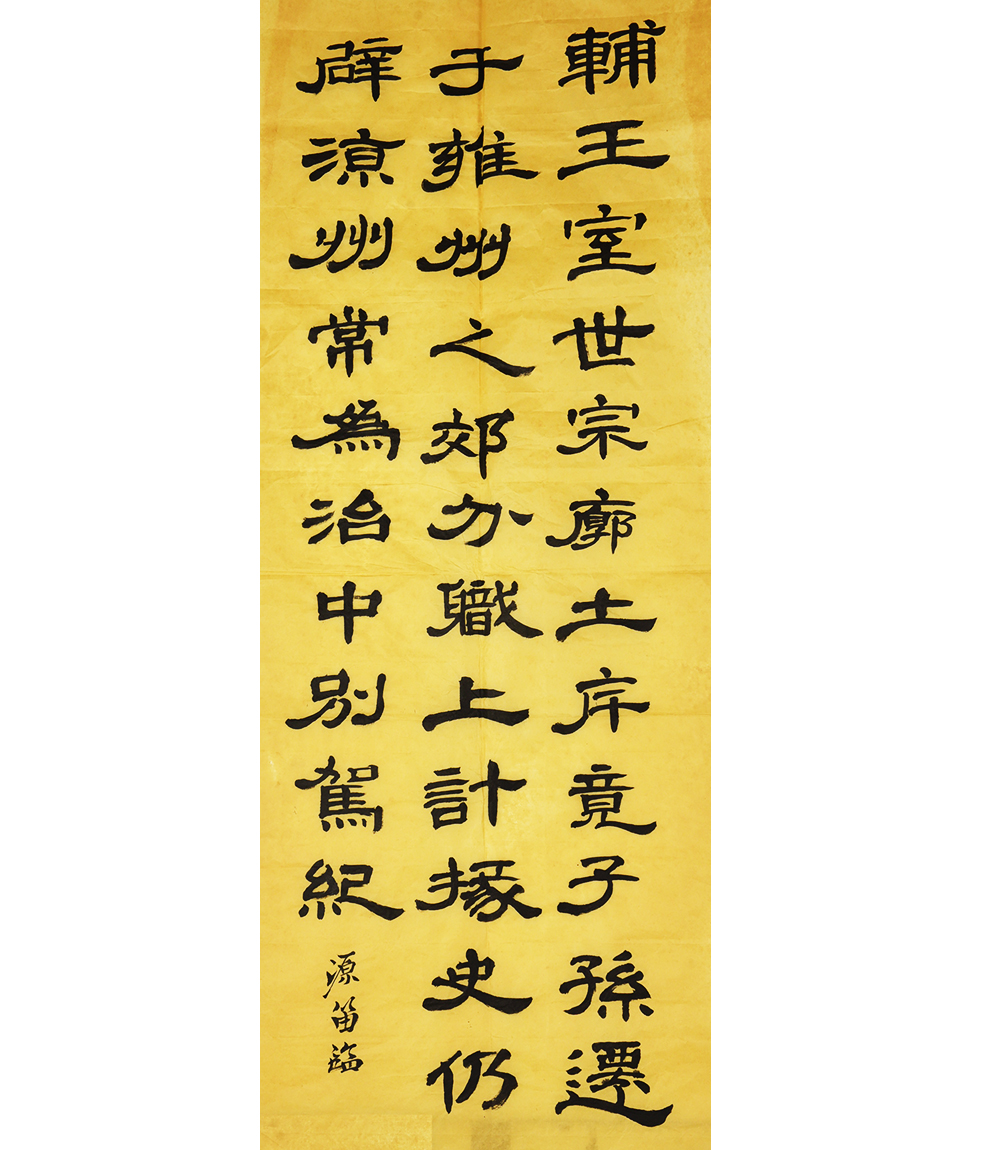 輔王室世宗廓土斥竟子孫遷
于雍州之郊分職上計掾史仍
辟涼州常為治中別駕紀
源笛臨